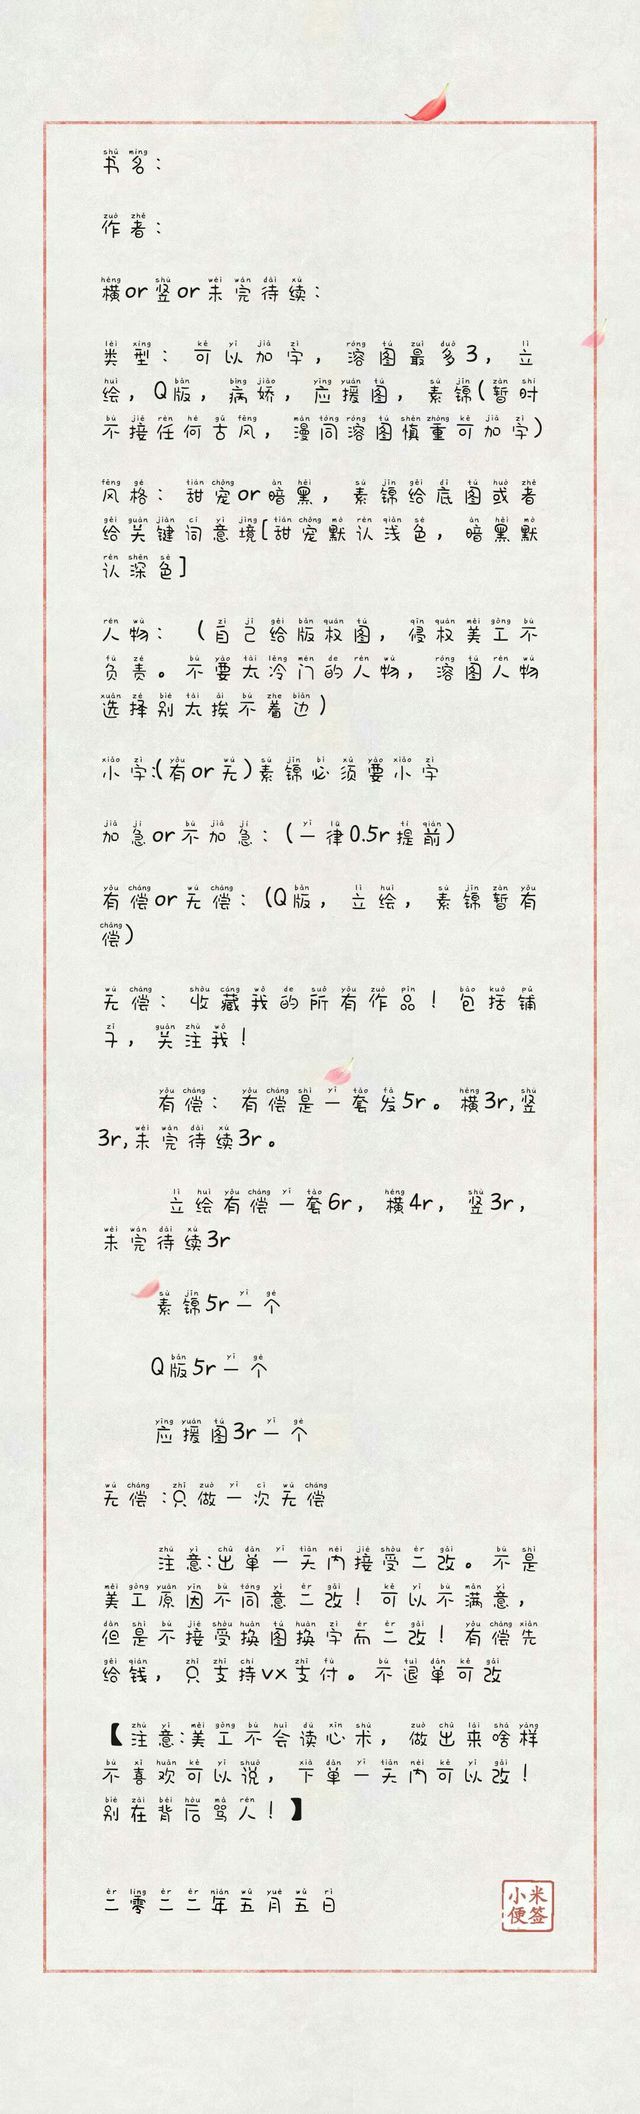 书名：
作者：
横or竖or未完待续：
类型：可以加字，溶图最多3，立
绘，Q版，病娇，应援图，素锦(暂时
不接任何古风，漫同溶图慎重可加字)
风格：甜宠or暗黑，素锦给底图或者
给关键词意境[甜宠默认浅色，暗黑默
认深色]
人物：（自己给版权图，侵权美工不
负责。不要太冷门的人物，溶图人物
选择别太挨不着边）
小字:(有or无)素锦必须要小字
加急or不加急：(一律0.5r提前)
有偿or无偿：(Q版，立绘，素锦暂有
偿)
无偿：收藏我的所有作品！包括铺
子，关注我！
有偿：有偿是一套发5r。横3r,竖
3r,未完待续3r。
立绘有偿一套6r，横4r，竖3r，
未完待续3r
素锦5r一个
Q版5r一个
应援图3r一个
无偿:只做一次无偿
注意:出单一天内接受二改。不是
美工原因不同意二改！可以不满意，
但是不接受换图换字而二改！有偿先
给钱，只支持vx支付。不退单可改
【注意:美工不会读心术，做出来啥样
不喜欢可以说，下单一天内可以改！
别在背后骂人！】
二零二二年五月五日
小米
便签